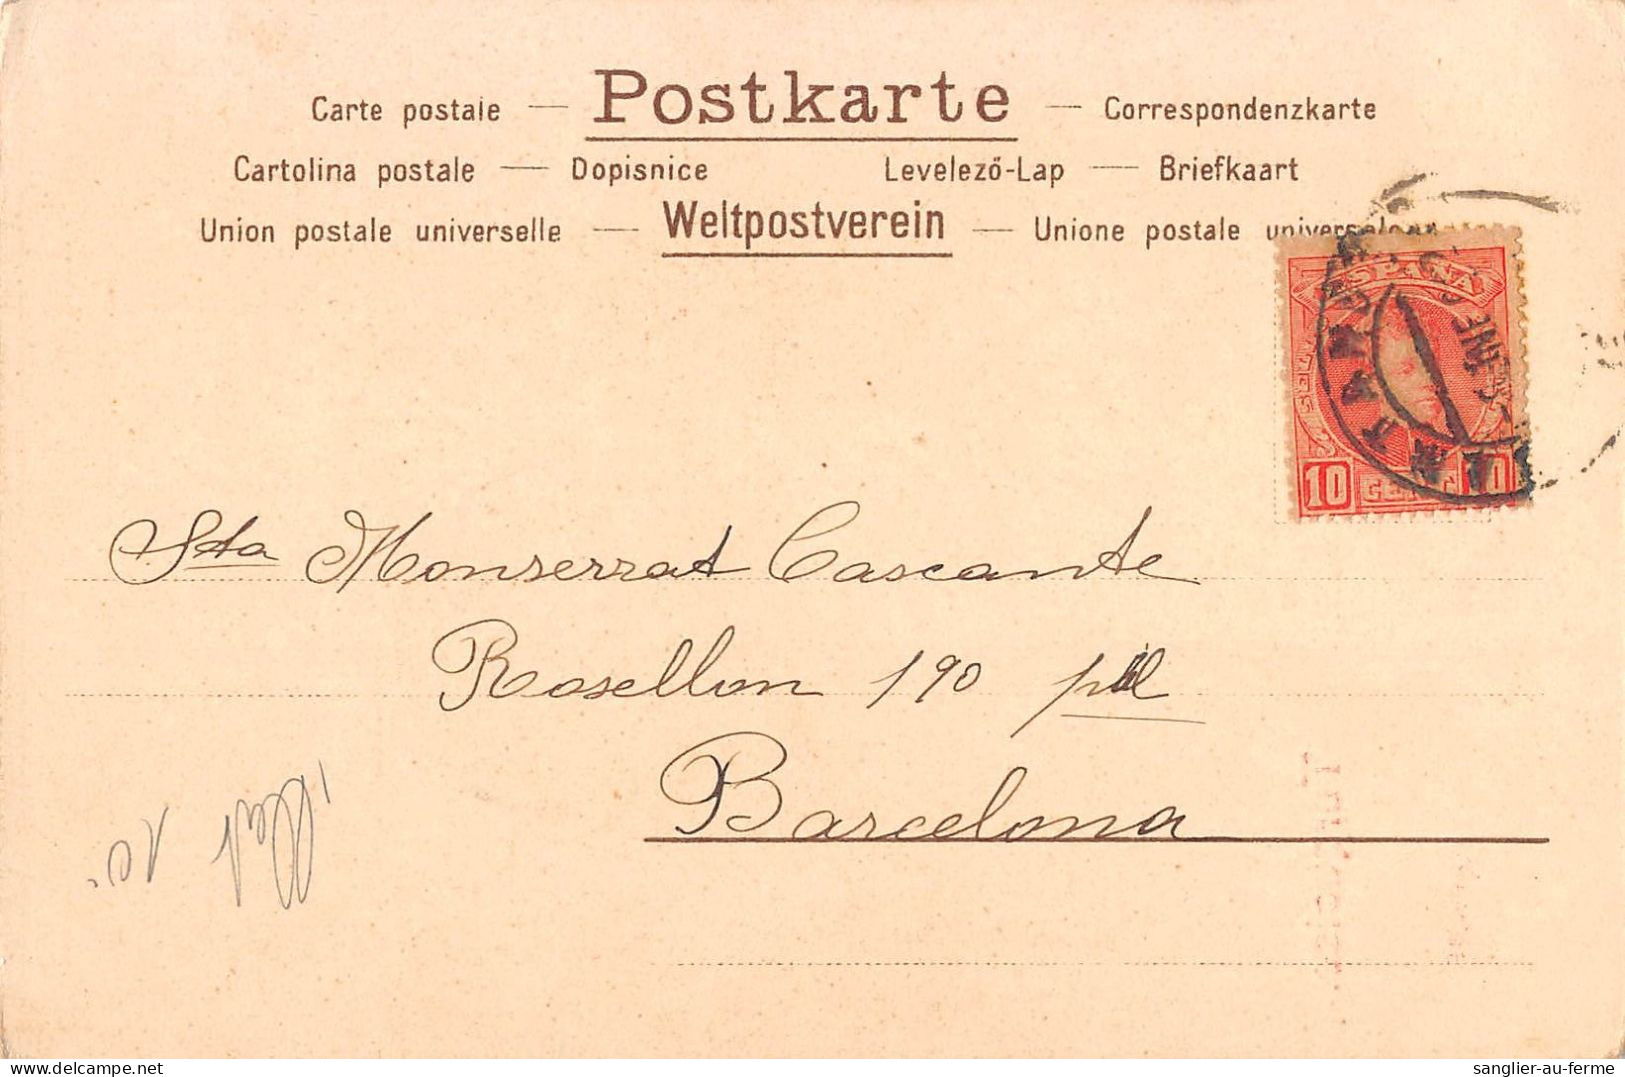 Carte postale — Postkarte — Correspondenzkarte
Cartolina postale — Dopisnice Levelező-Lap — Briefkaart
Union postale universelle — Weltpostverein — Unione postale universale
ESPAÑA
10 CENT 10
Sta Monserrat Cascante
Rosellon 190 pil
Barcelona
10.
sanglier-au-ferme